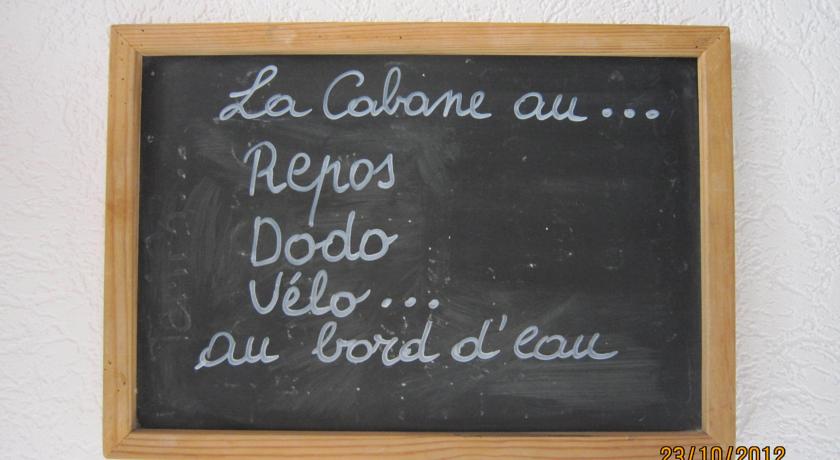 La Cabane au...
Repos
Dodo
Vélo...
au bord d'eau
23/10/2012